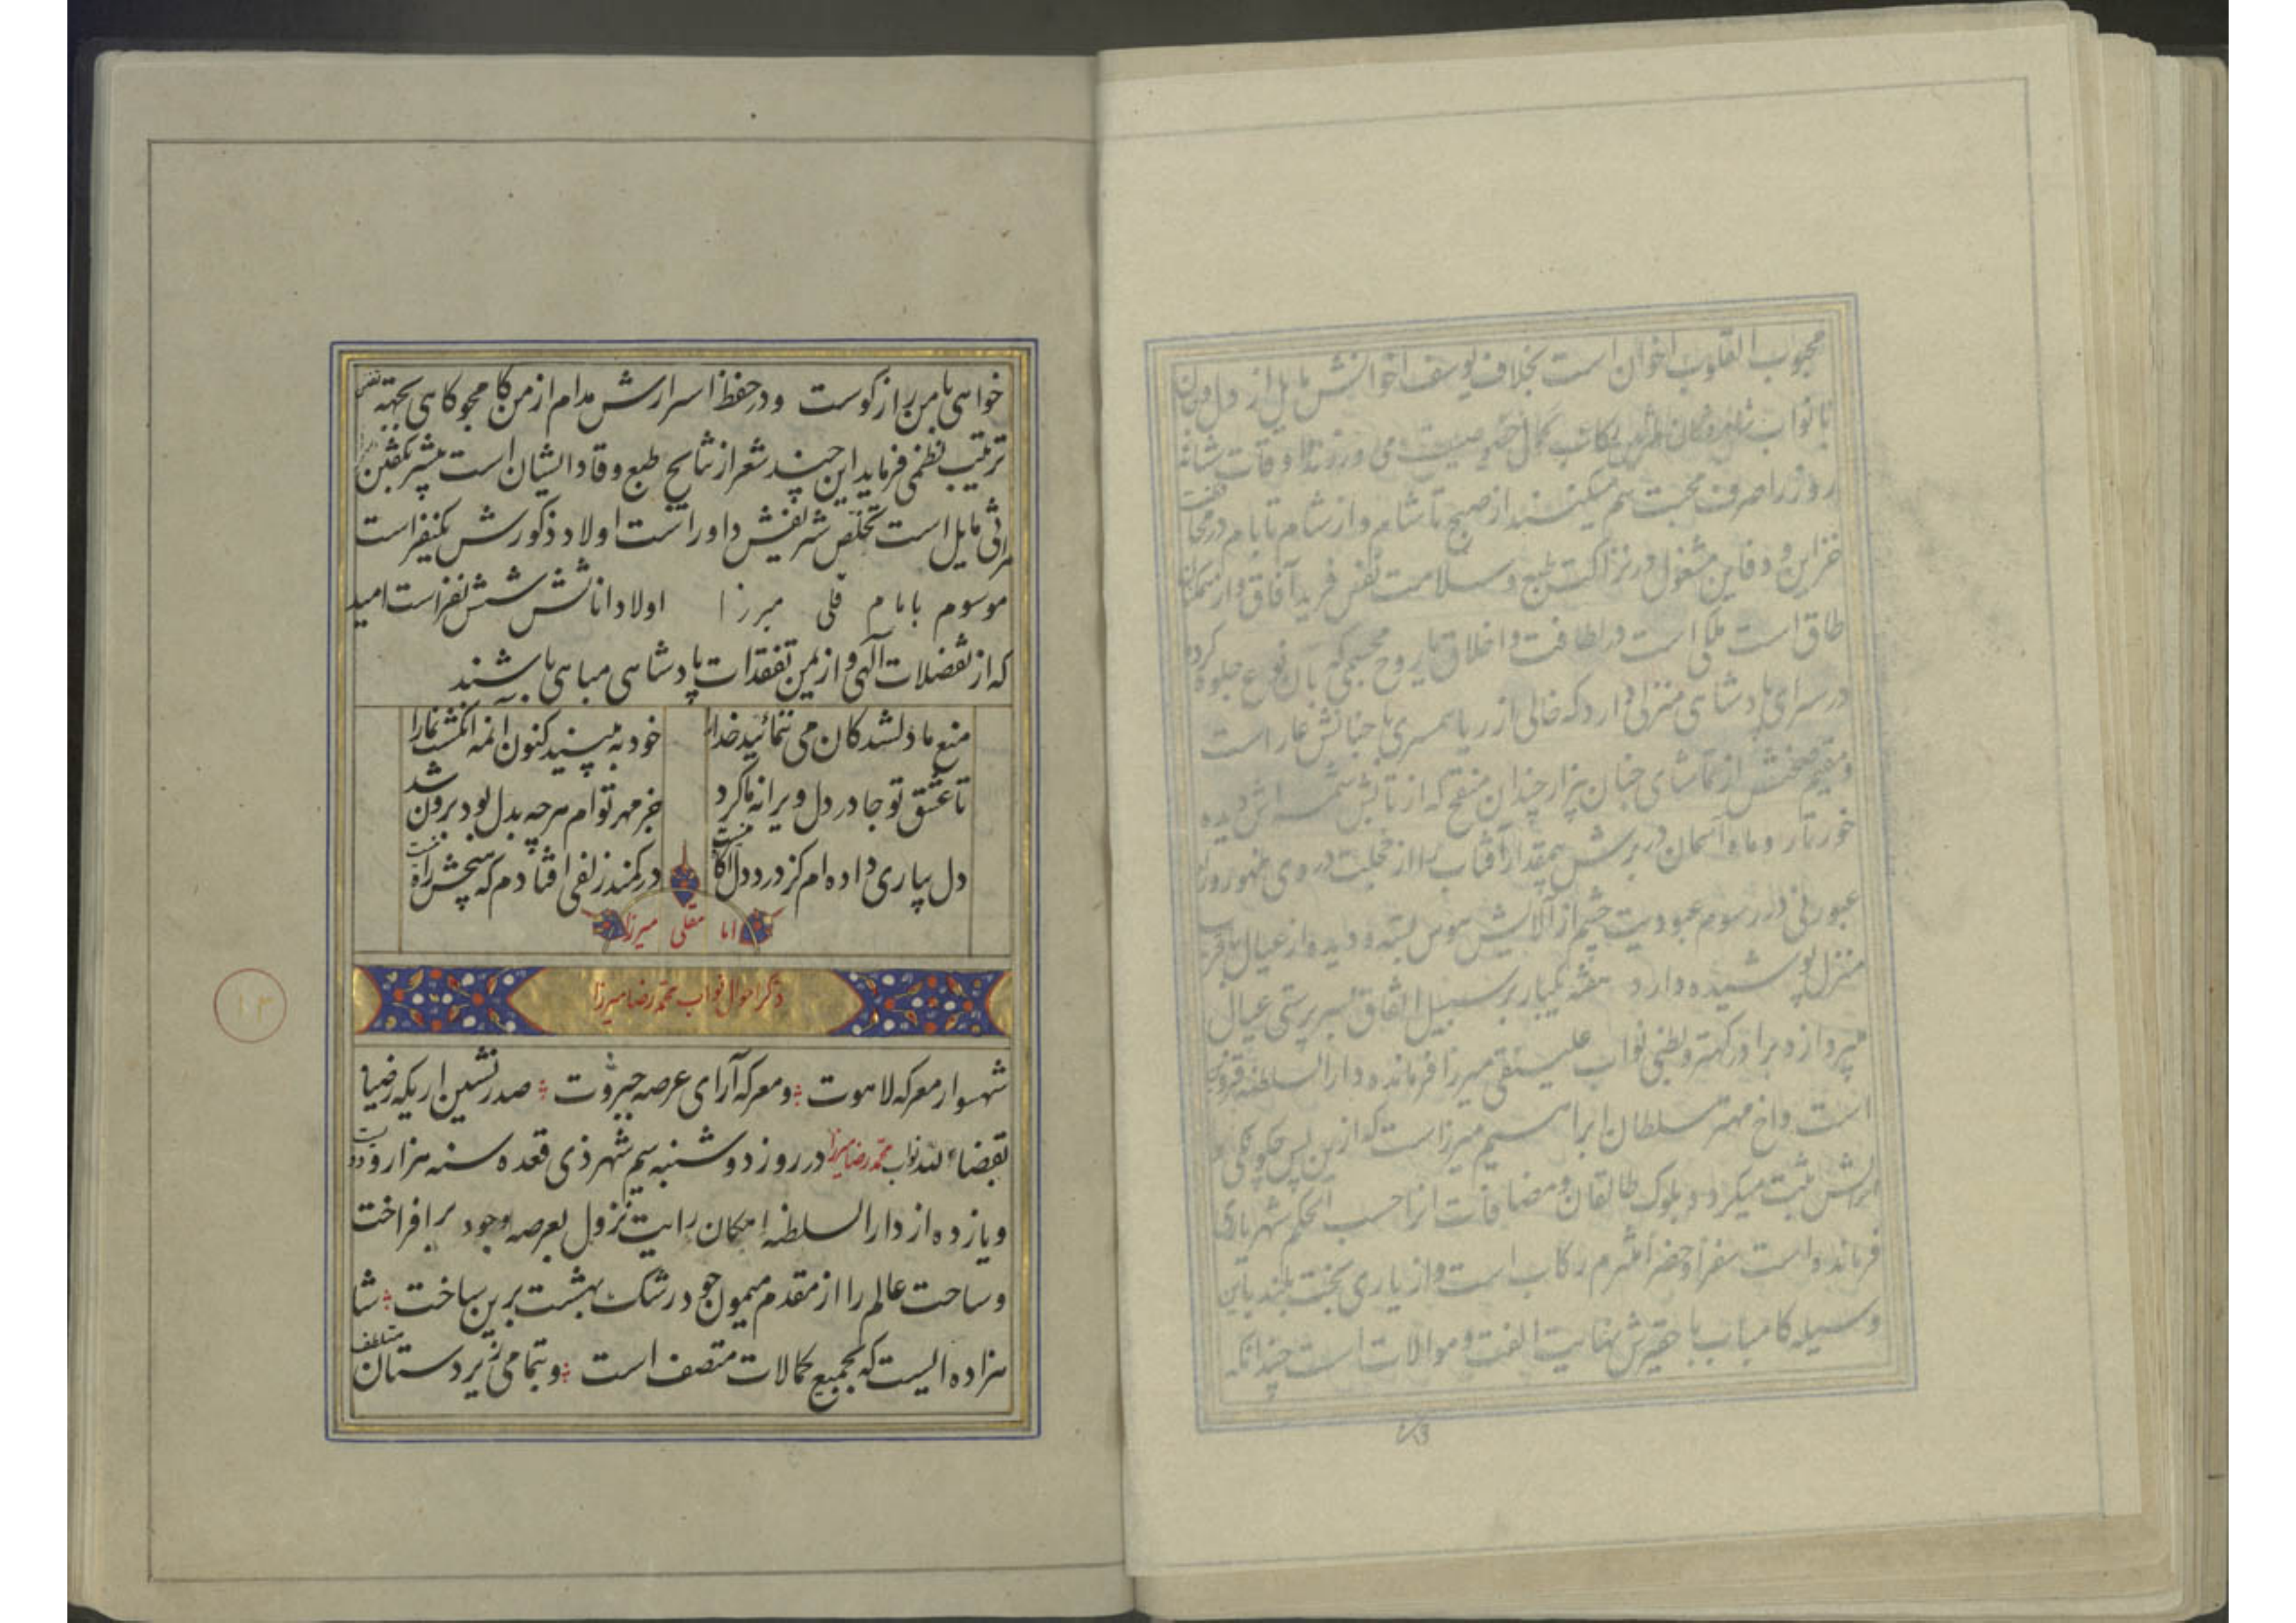 محبوب القلوب اخوان است بخلاف یوسف اخوانش مایل از دل و جان
با نواب
روز را صرف محبت هم میکنند از صبح تا شام و از شام تا بام در
خزاین و دفاین مشغول در نزاکت طبع و سلامت نفس فرید آفاق و از
طاق است ملکی است در لطافت و اخلاق یا روح مجسمی که بآن نوع جلوه کرده
در سرای پادشاهی منزلی دارد که خالی از ریا همسری با جنانش عار است
و مقیم صحنش از تماشای جنان هزار چندان که از تابش شمسه اش دیده
خور تار و ماه آسمان در برش بیمقدار آفتاب را از خجلت در وی ظهور روزن
عبور نی در رسوم عبودیت چشم از آلایش هوس بسته و دیده از عیال
منزل پوشیده دارد هفته یکبار بر سبیل اتفاق بسرپرستی عیال
میپردازد برادر کهتر بطنی نواب علینقی میرزا فرمانده دارالسلطنه قزوین
است و اخ مهتر سلطان ابراهیم میرزاست که ازین پس
ثبت میکردد بلوک طالقان و مضافات انرا حسب الحکم شهریاری
فرمانده است سفراً و حضراً ملتزم رکاب است و از یاری بخت بلند باین
وسیله کامیاب با حقیرش نهایت الفت و موالات است چندانکه
خواهی با من راز کوست و در حفظ اسرارش مدام از من کامجو کاهی بجهته تفنن
ترتیب نظمی فرماید این چند شعر از نتایج طبع وقاد ایشان است بیشتر بکفتن
مراثی مایل است تخلص شریفش داور است اولاد ذکورش یکنفر است
موسوم بامام قلی میرزا اولاد اناثش شش نفر است امید
که از تفضلات آلهی و از یمن تفقدات پادشاهی مباهی باشند
منع ما دلشدکان می ننمائید خدا را خود به بینید کنون آنمه انکشت نما را
تا عشق تو جا در دل ویرانه ما کرد جز مهر تو ام هرچه بدل بود برون شد
دل بیاری داده ام کز درد دل آکاه نیست در کمند زلفی افتادم که هیچش راه نیست
امامقلی میرزا
ذکر احوال نواب محمد رضا میرزا
شهسوار معرکه لاهوت و معرکه آرای عرصه جبروت صدرنشین اریکه رضینا
بقضاء الله نواب محمد رضا میرزا در روز دوشنبه سیم شهر ذی قعده سنه هزار و دویست
و یازده از دارالسلطنه امکان رایت نزول بعرصه وجود برافراخت
و ساحت عالم را از مقدم میمون خود رشک بهشت برین ساخت شا
هزاده ایست که بجمیع کمالات متصف است و بتمامی زیردستان متلطف
۱۲